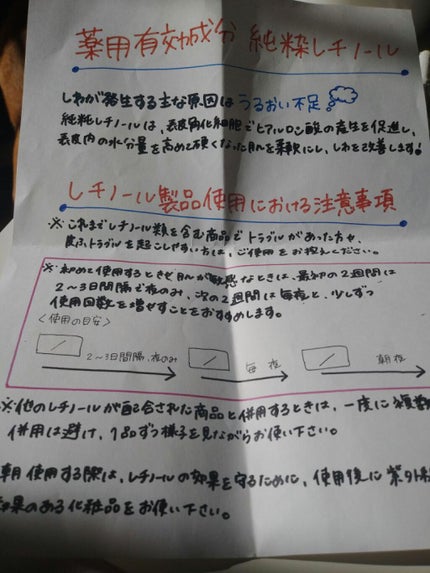 薬用有効成分 純粋レチノール
しわが発生する主な原因は うるおい不足!
純粋レチノールは、表皮角化細胞でヒアルロン酸の産生を促進し、
表皮内の水分量を高めて硬くなった肌を柔軟にし、しわを改善します!
レチノール製品使用における注意事項
※これまでレチノール類を含む商品でトラブルがあった方や、
皮ふトラブルを起こしやすい方は、ご使用をお控えください。
※初めて使用するときや肌が敏感なときは、最初の2週間は
2~3日間隔で夜のみ、次の2週間は毎夜と、少しずつ
使用回数を増やすことをおすすめします。
<使用の目安>
2~3日間隔、夜のみ 毎夜 朝夜
※他のレチノールが配合された商品と併用するときは、一度に複数
併用は避け、1品ずつ様子を見ながらお使い下さい。
朝使用する際は、レチノールの効果を守るために、使用後に紫外線
効果のある化粧品をお使い下さい。